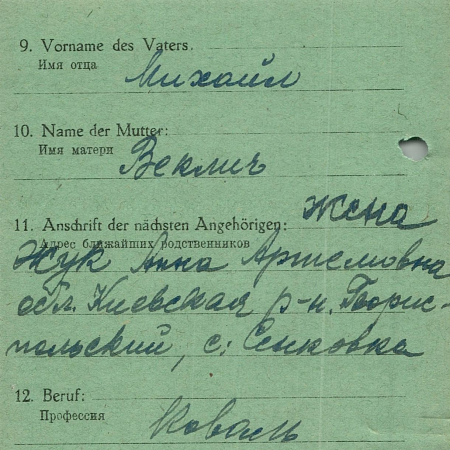 9. Vorname des Vaters.
Имя отца
Михайл
10. Name der Mutter:
Имя матери
Веклич
11. Anschrift der nächsten Angehörigen: жена
Адрес ближайших родственников
Жук Анна Артемовна
обл. Киевская р-н. Борис-
польский, с. Сенковка
12. Beruf:
Профессия
Коваль